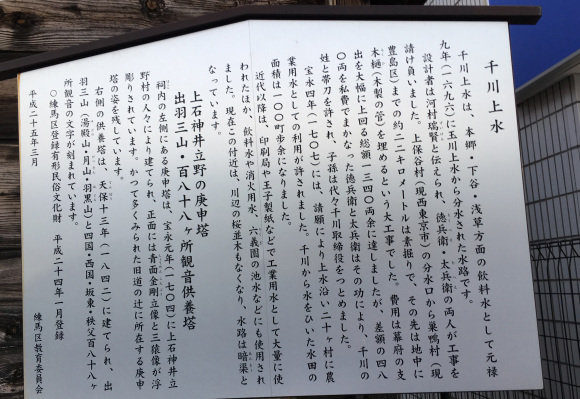 千川上水
千川上水は、本郷・下谷・浅草方面の飲料水として元禄
九年(一六九六)に玉川上水から分水された水路です。
設計者は河村瑞賢と伝えられ、徳兵衛・太兵衛の両人が工事を
請け負いました。上保谷村(現西東京市)の分水口から巣鴨村(現
豊島区)までの約二二キロメートルは素掘りで、その先は地中に
木樋(木製の管)を埋めるという大工事でした。費用は幕府の支
出を大幅に上回る総額一三四〇両余に達しましたが、差額の四八
〇両を私費でまかなった徳兵衛と太兵衛はその功により、千川の
姓と帯刀を許され、子孫は代々千川取締役をつとめました。
宝永四年(一七〇七)には、請願により上水沿い二十ヶ村に農
業用水としての利用が許されました。千川から水をひいた水田の
面積は一〇〇町歩余になりました。
近代以降は、印刷局や王子製紙などで工業用水として大量に使
われたほか、飲料水や消火用水、六義園の池水などにも使用され
ました。現在この付近は、川辺の桜並木もなくなり、水路は暗渠と
なっています。
上石神井立野の庚申塔
出羽三山・百八十八ヶ所観音供養塔
祠内の左側にある庚申塔は、宝永元年(一七〇四)に上石神井立
野村の人々により建てられ、正面には青面金剛立像と三猿像が浮
彫りされています。かつて多くみられた旧道の辻に所在する庚申
塔の姿を残しています。
右側の供養塔は、天保十三年(一八四二)に建てられ、出
羽三山(湯殿山・月山・羽黒山)と四国・西国・坂東・秩父百八十八ヶ
所観音の文字が刻まれています。
○練馬区登録有形民俗文化財 平成二十四年一月登録
平成二十五年三月
練馬区教育委員会